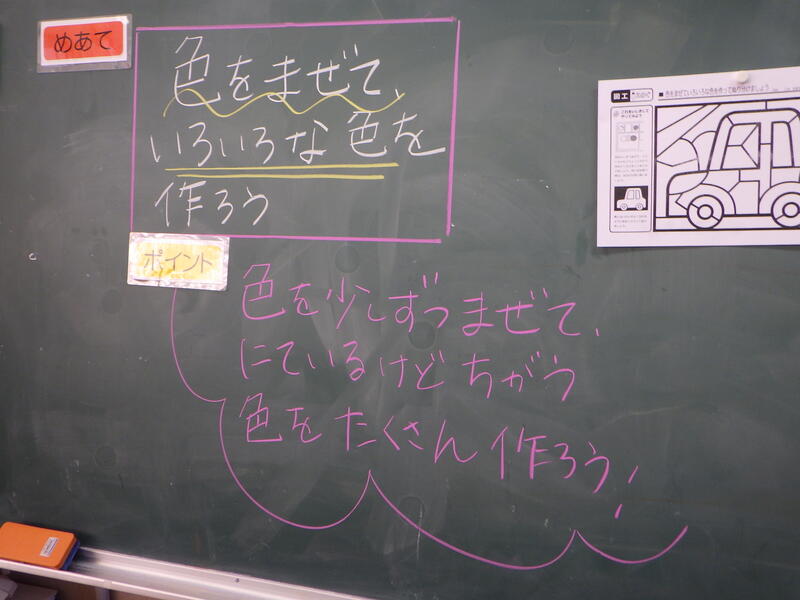 めあて
色をまぜて、
いろいろな色を
作ろう
ポイント
色を少しずつまぜて、
にているけど ちがう
色をたくさん 作ろう!
図工